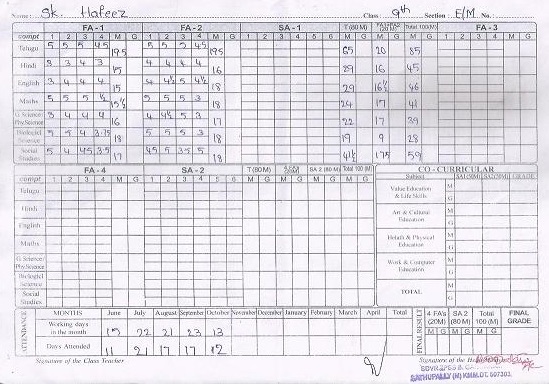 Name: Sk. Hafeez Class 9th Section: E/M. No.:
FA - 1 FA - 2 SA - 1 T (80 M) Total 100 (M) FA - 3
compt 1 2 3 4 M G 1 2 3 4 M G 1 2 3 4 5 6 M G M G M G 1 2 3 4 M G
Telugu 5 5 5 4.5 19.5 5 5 5 4.5 19.5 65 20 85
Hindi 3 3 4 3 15 4 4 4 4 16 29 16 45
English 3 4 4 4 15 4 4½ 5 4½ 18 29 16½ 46
Maths 5 5 5 ½ 15½ 5 5 5 3 18 24 17 41
G. Science/ Phy.Science 3 4 4 4 16 4 4½ 5 3 17 22 17 39
Biological Science 5 5 4 3.75 18 5 5 5 3 18 19 9 28
Social Studies 5 4 4.5 3.5 17 4.5 5 3.5 5 18 41½ 17.5 59
FA - 4 SA - 2 T (80 M) SA 2 (80 M) Total 100 (M) CO - CURRICULAR
compt 1 2 3 4 M G 1 2 3 4 5 6 M G M G M G M G Subject SA1(50M) SA2(50M) GRADE
Telugu
Hindi
English
Maths
G. Science/ Phy.Science
Biological Science
Social Studies
Value Education & Life Skills M G
Art & Cultural Education M G
Health & Physical Education M G
Work & Computer Education M G
TOTAL M G
ATTENDANCE MONTHS June July August September October November December January February March April Total
Working days in the month 15 22 21 23 13
Days Attended 11 21 17 17 12
FINAL RESULT 4 FA's (20M) SA 2 (80 M) Total 100 (M) FINAL GRADE
M
G
Signature of the Class Teacher Signature of the
SATHUPALLY (M) KMM.DT. 507303.